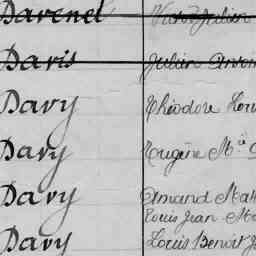 Davenel
Davis Julien
Davy Théodore Lou
Davy Eugène M.ie
Davy Amand Mat
Louis Jean Ma
Davy Louis Benoit J